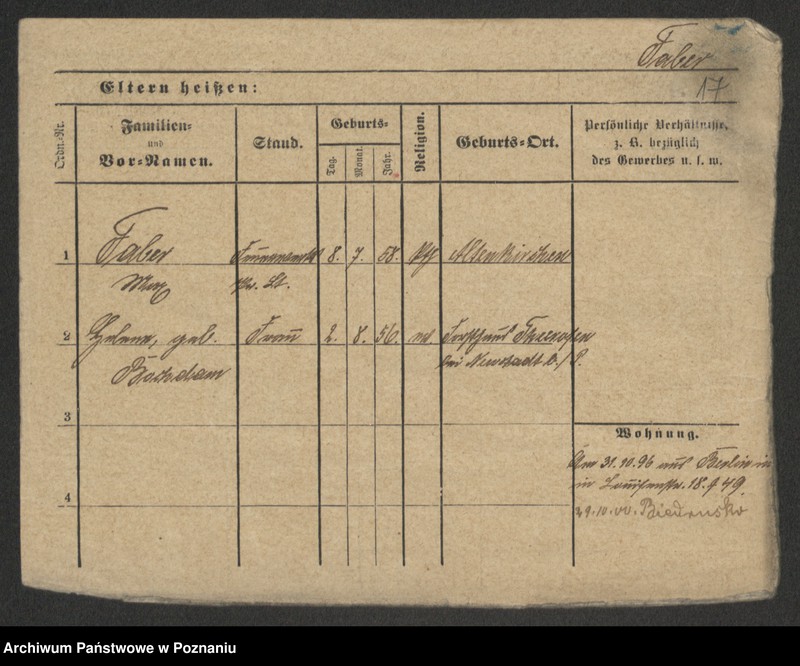 Faber
17
Eltern heißen:
Ordn.-Nr.
Familien-
und
Vor-Namen.
Stand.
Geburts-
Tag.
Monat.
Jahr.
Religion.
Geburts-Ort.
Persönliche Verhältnisse,
z. B. bezüglich
des Gewerbes u. s. w.
1 Faber 8. 7. 58. Altenkirchen
Max Lt.
2 Helene, geb. Frau 2. 8. 56. Forsthaus
bei Neustadt b./P.
3
Wohnung.
Am 31.10.96 aus Berlin
in 18. 49.
4
29.10.00. Biedrusko
Archiwum Państwowe w Poznaniu